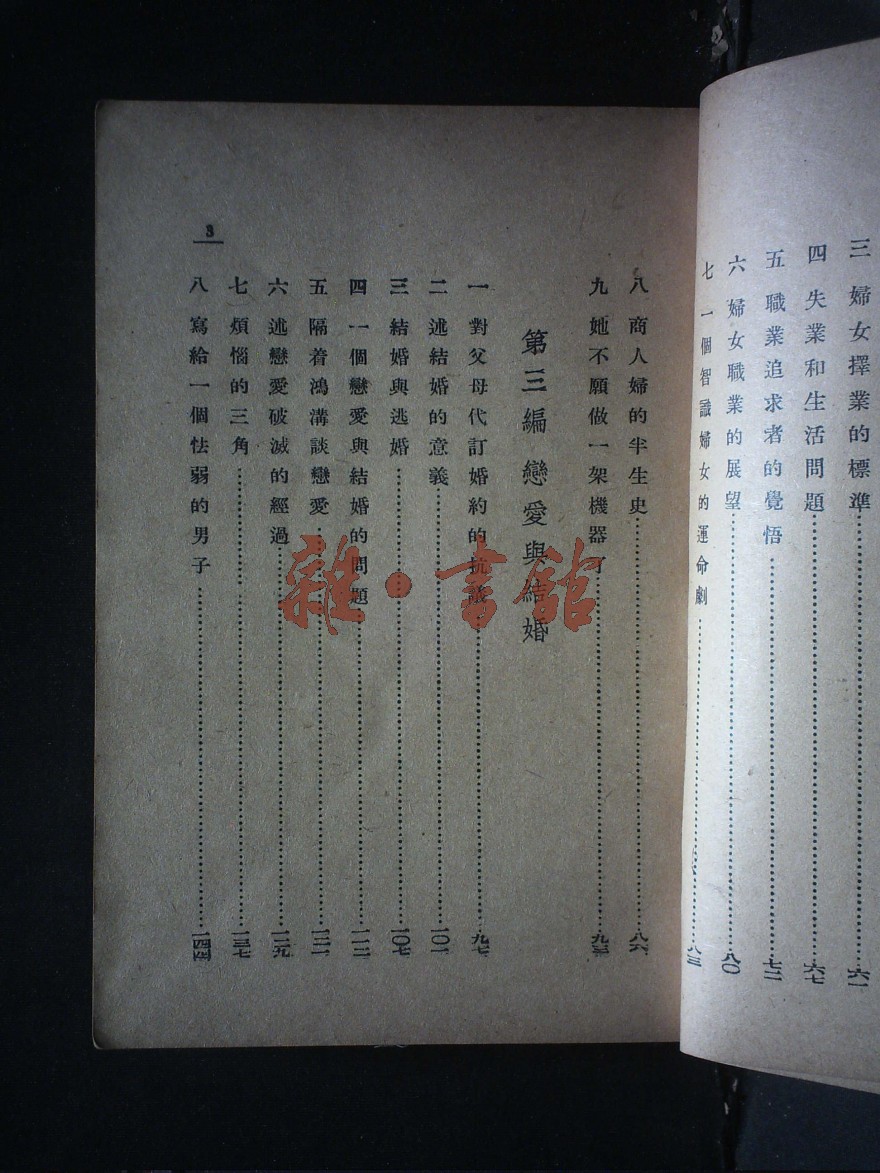 三 婦女擇業的標準……六一
四 失業和生活問題……六七
五 職業追求者的覺悟……七二
六 婦女職業的展望……八〇
七 一個智識婦女的運命劇……八三
八 商人婦的半生史……八六
九 她不願做一架機器……九三
第三編 戀愛與結婚
一 對父母代訂婚約的抗議……九七
二 述結婚的意義……一〇一
三 結婚與逃婚……一〇七
四 一個戀愛與結婚的問題……一一二
五 隔着鴻溝談戀愛……一二一
六 述戀愛破滅的經過……一二九
七 煩惱的三角……一三七
八 寫給一個怯弱的男子……一四四
3
雜·書館